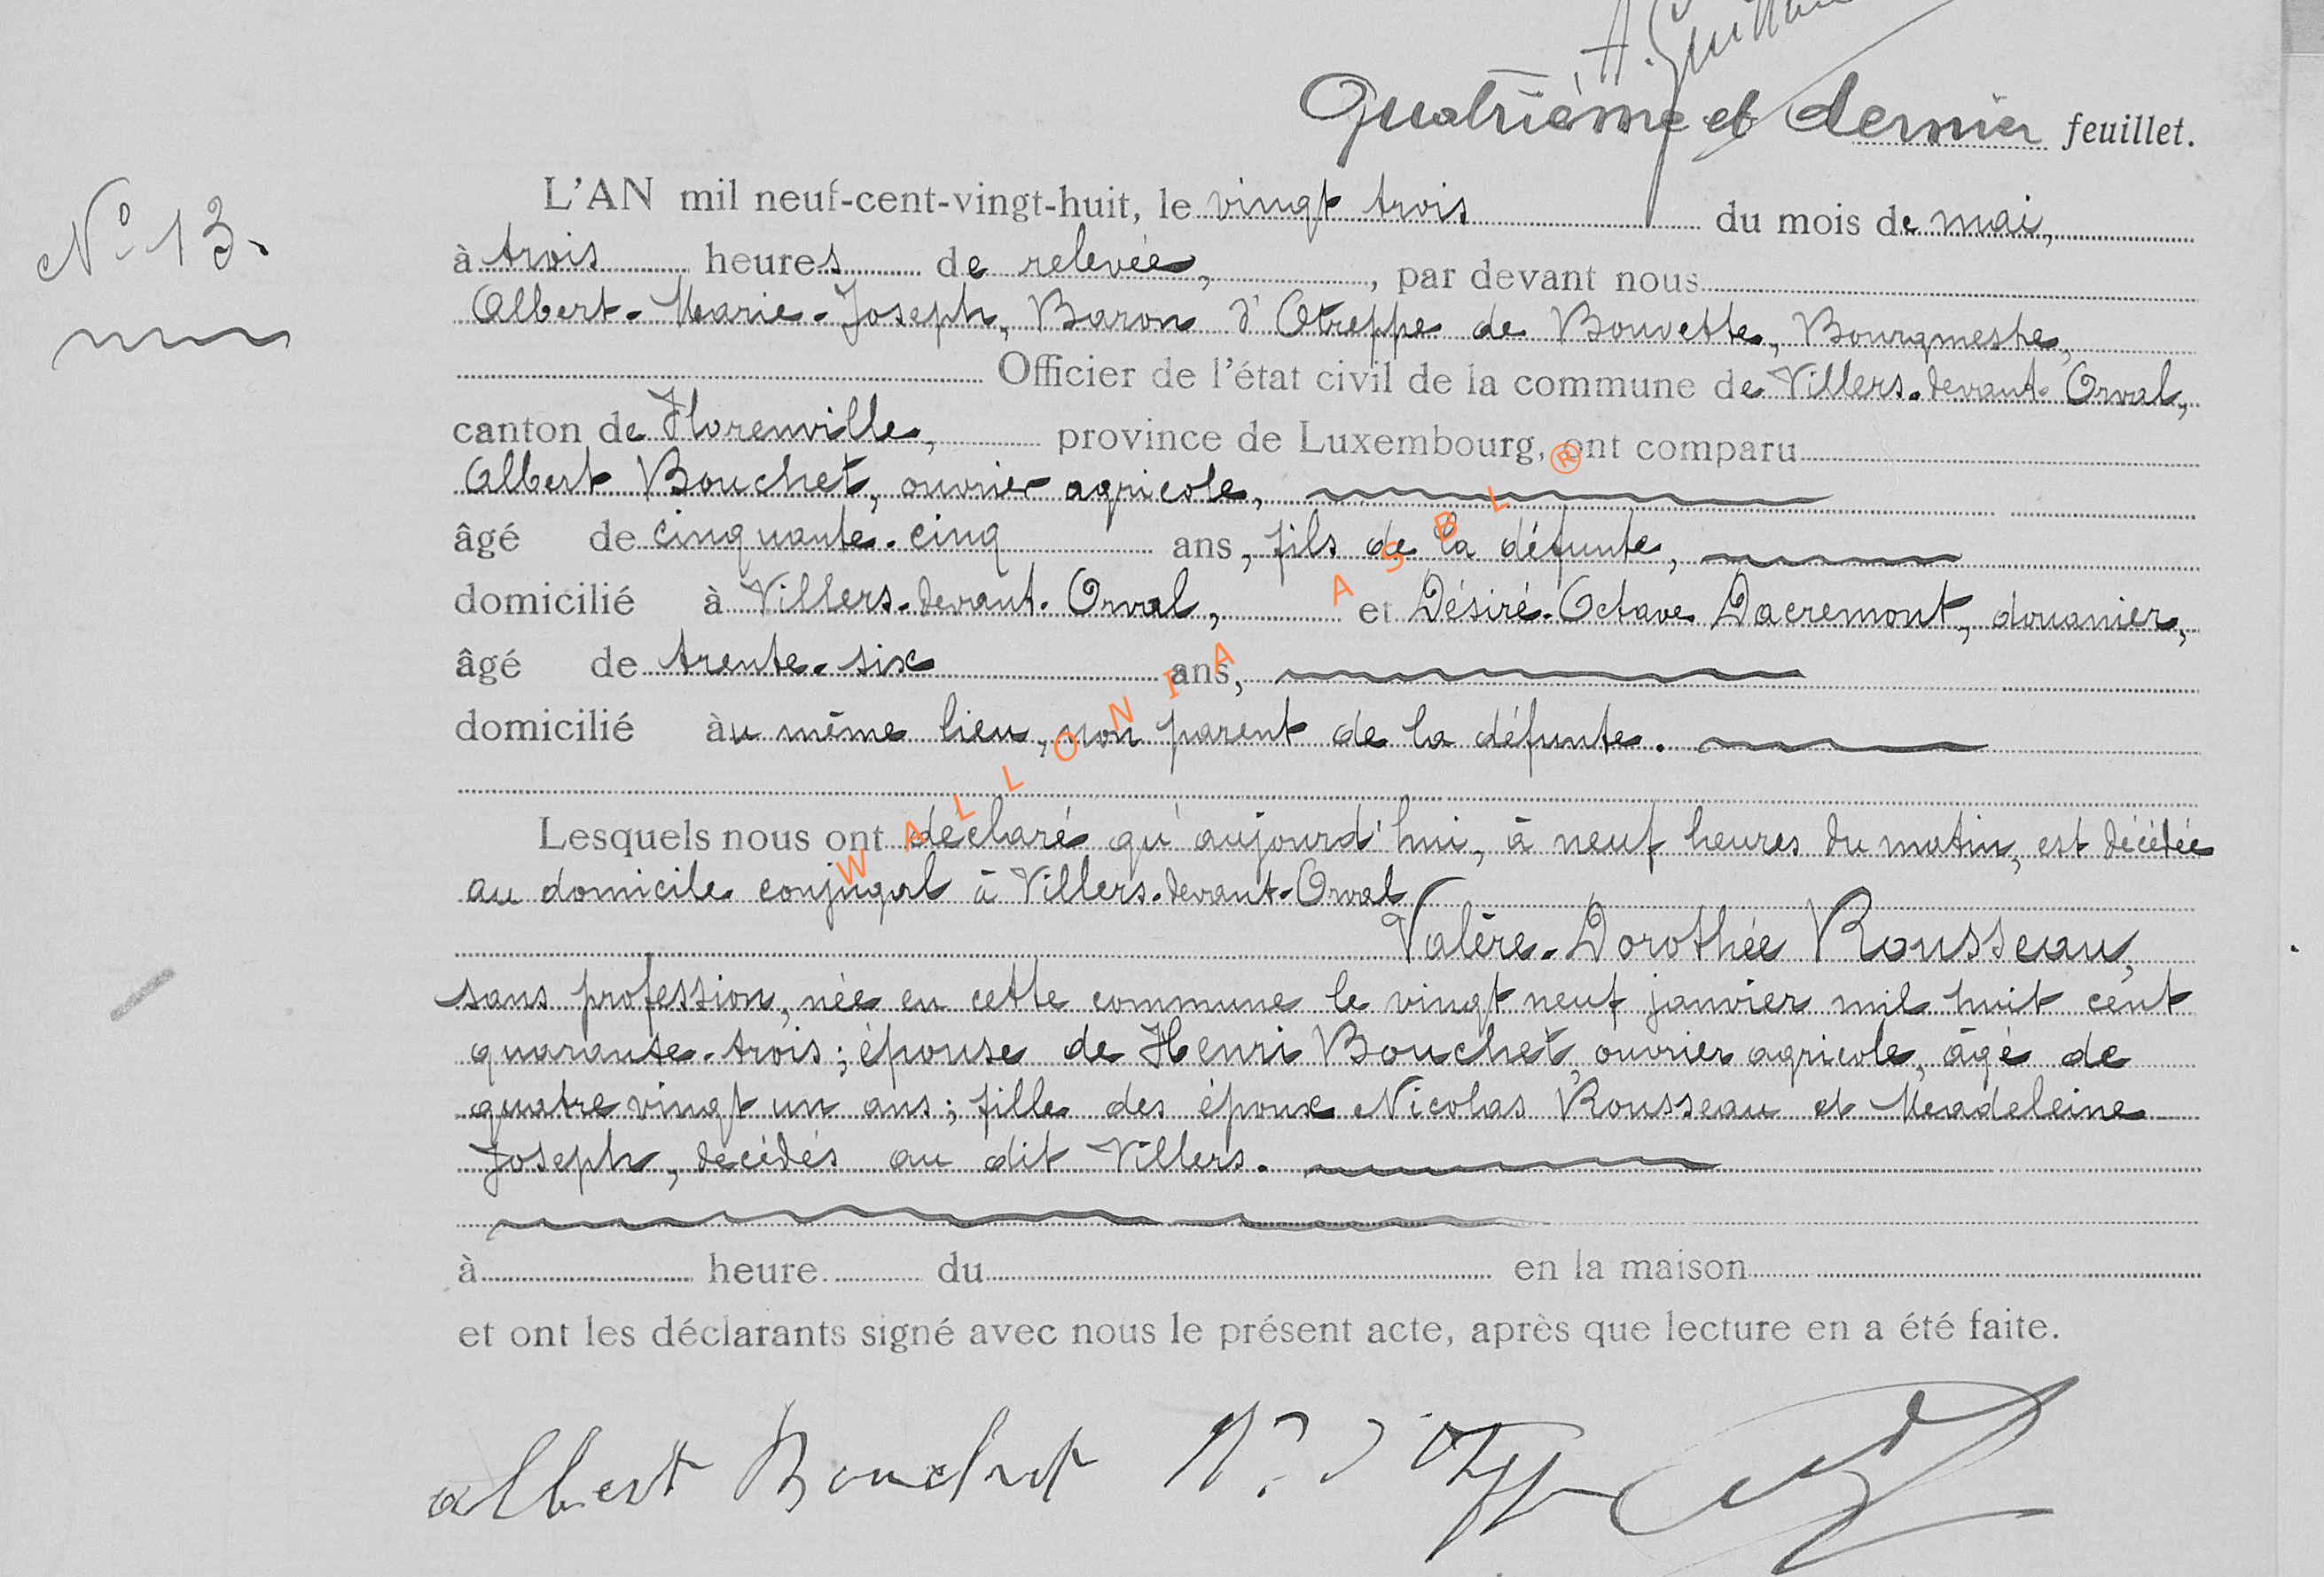 Quatrième et dernier feuillet.
N° 13.
L'AN mil neuf-cent-vingt-huit, le vingt trois du mois de mai,
à trois heures de relevée, , par devant nous
Albert-Marie-Joseph, Baron d'Otreppe de Bouvette, Bourgmestre,
Officier de l'état civil de la commune de Villers-devant-Orval,
canton de Florenville, province de Luxembourg, ont comparu
Albert Bouchet, ouvrier agricole,
âgé de cinquante-cinq ans, fils de la défunte,
domicilié à Villers-devant-Orval, et Désiré-Octave Dacremont, douanier,
âgé de trente-six ans,
domicilié àu même lieu, non parent de la défunte.
Lesquels nous ont déclaré qu'aujourd'hui, à neuf heures du matin, est décédée
au domicile conjugal à Villers-devant-Orval
Valère-Dorothée Rousseau,
sans profession, née en cette commune le vingt neuf janvier mil huit cent
quarante-trois; épouse de Henri Bouchet, ouvrier agricole, âgé de
quatre vingt un ans; fille des époux Nicolas Rousseau et Meadeleine
Joseph, décédés au dit Villers.
à heure du en la maison
et ont les déclarants signé avec nous le présent acte, après que lecture en a été faite.
albert Bouchet
WALLONIA ASBL ®